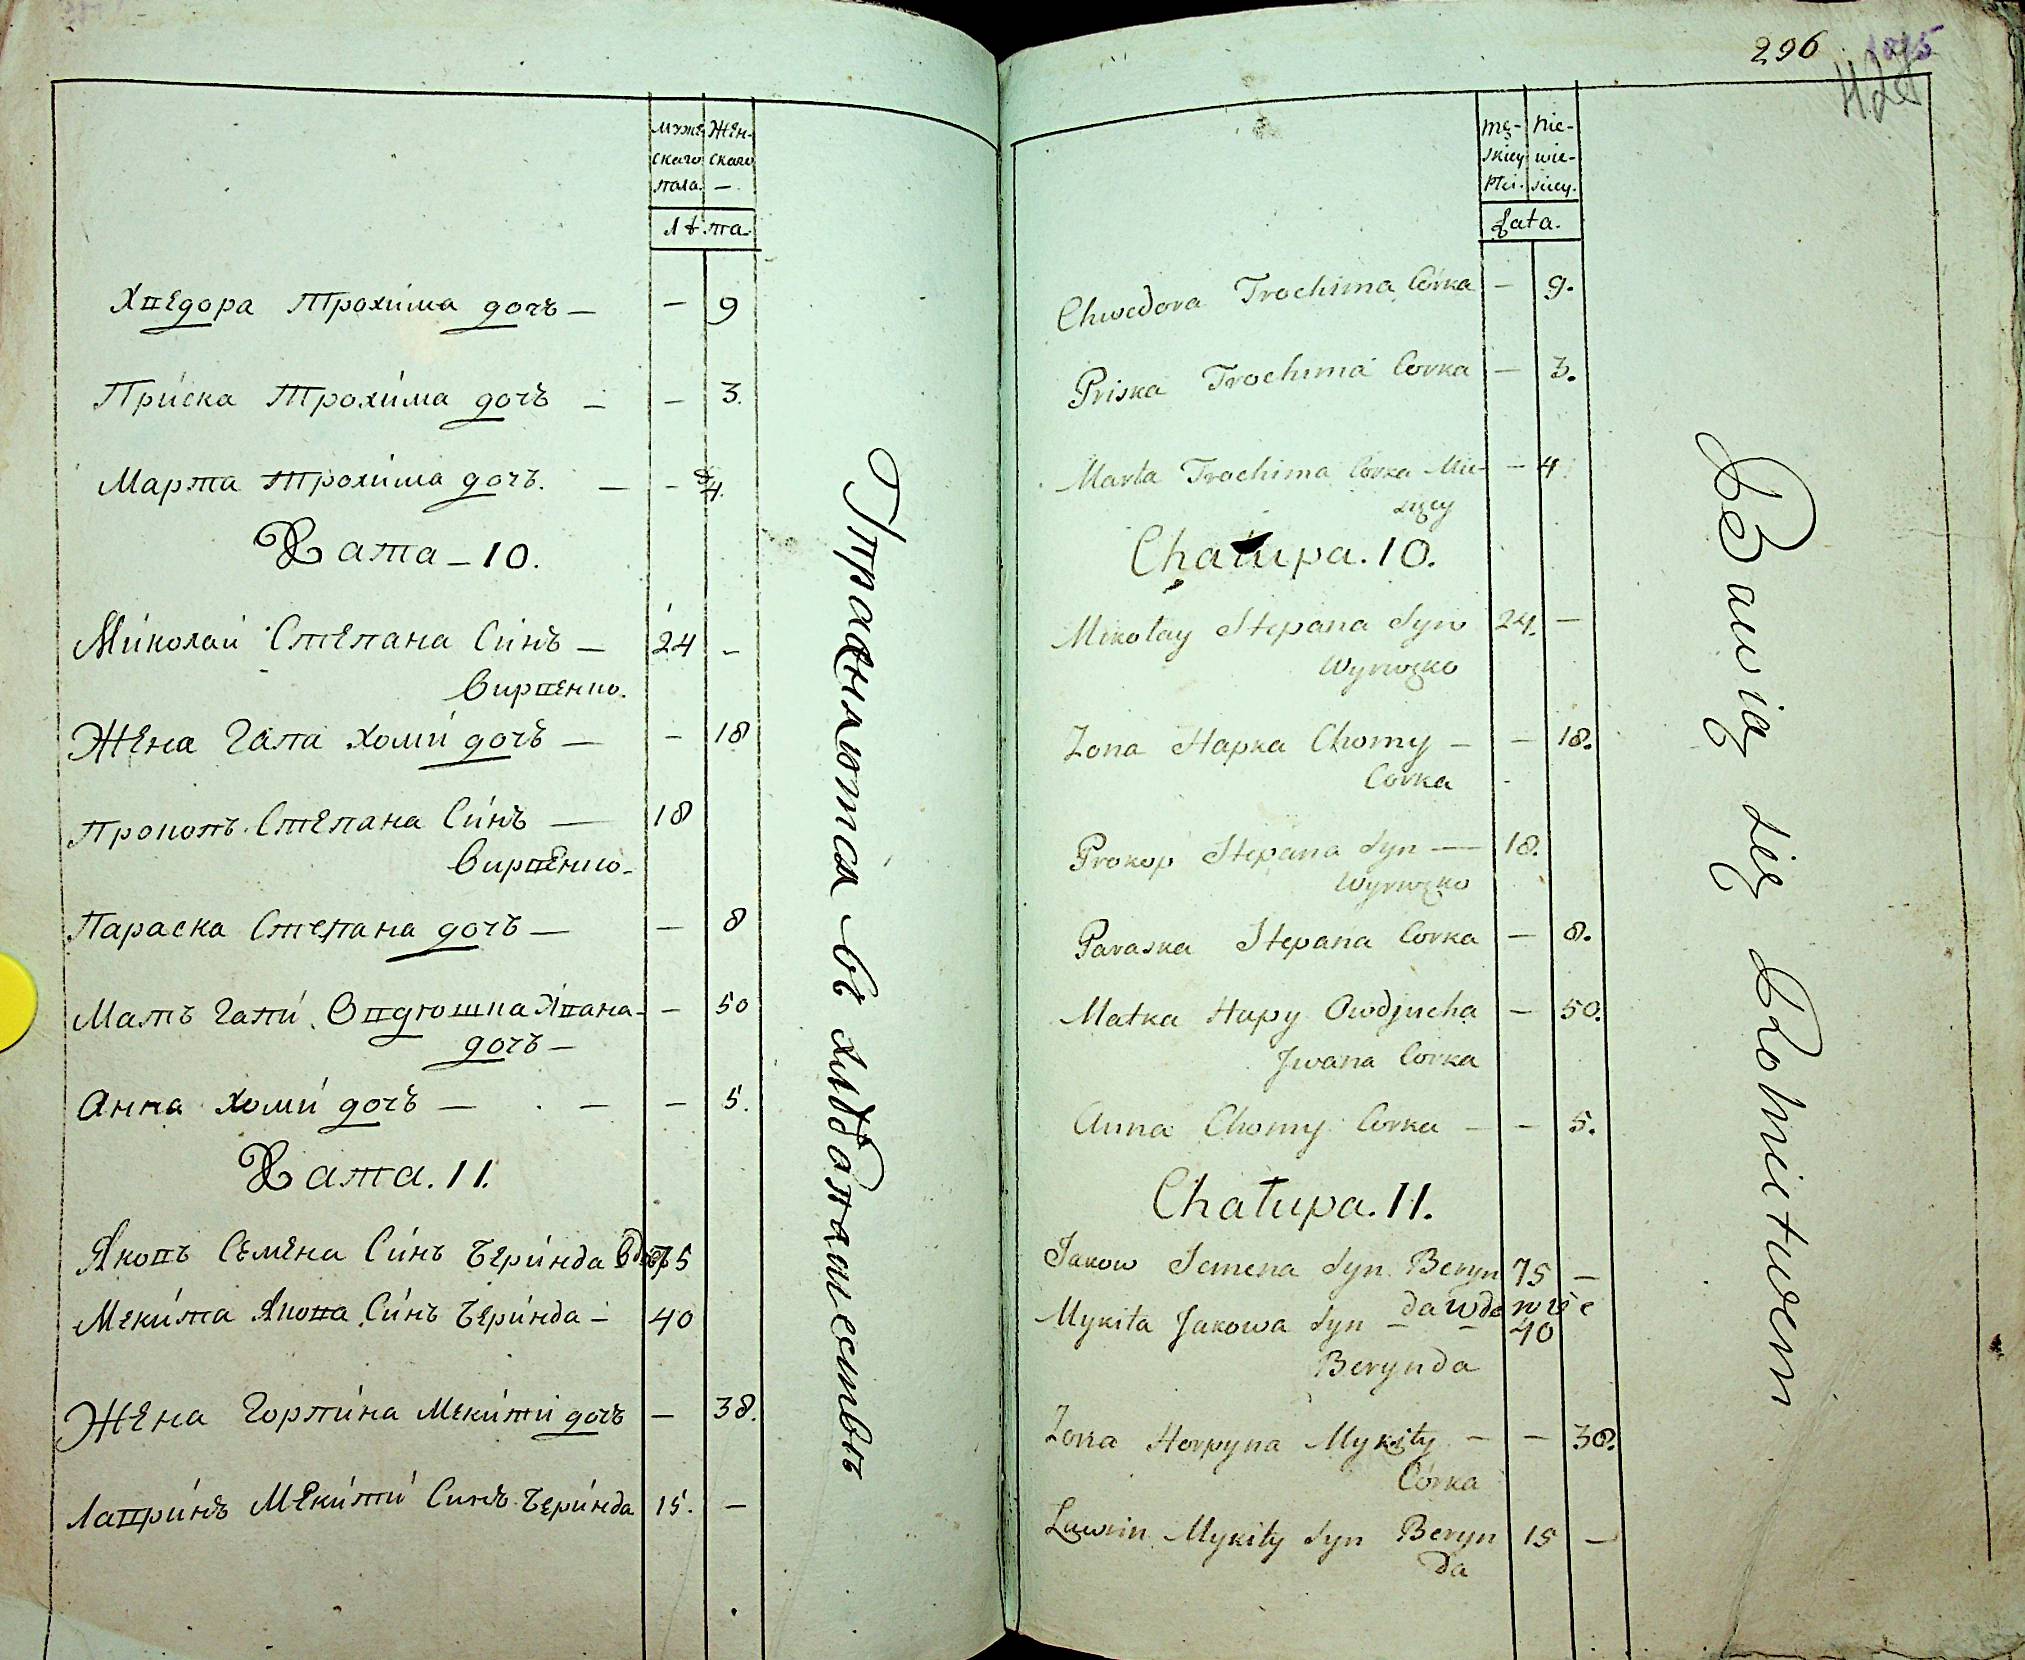 муже- Жен-
скаго скаго
пола. —
лѣта.
Хведора Трохи́ма дочь — — 9
При́ска Трохи́ма дочь — — 3.
Марта Трохи́ма дочь. — — 4.
Хата — 10.
Миколай Степана Синъ — 24 —
Вирвенко.
Жена Гапа Хоми́ дочь — — 18
Прокопъ Степана Си́нъ — 18
Вирвенко.
Параска Степана дочь — — 8
Мать Гапи́ Овдюшка Ивана — 50
дочь —
Анна Хоми́ дочь — — — 5.
Хата. 11.
Яковъ Семена Си́нъ Бери́нда 75
Меки́та Якова Си́нъ Бери́нда — 40
Жена Горпи́на Меки́ти дочь — 38.
Лаври́нъ Меки́ти́ Синъ Бери́нда 15. —
Упражняются въ хлѣбопашествѣ
296
1875
428
mę- nie-
skiey wie-
płci. sciey.
Lata.
Chwedora Trochima Córka — 9.
Priska Trochima Corka — 3.
Marta Trochima Corka Mie- — 4
sięcy
Chałupa. 10.
Mikołay Stepana Syn 24. —
Wyrwęko
Zona Hapka Chomy — — 18.
Corka
Prokop Stepana Syn — 18.
Wyrwęko
Paraska Stepana Corka — 8.
Matka Hapy Owdjucha — 50.
Jwana Corka
Anna Chomy Corka — — 5.
Chałupa. 11.
Jakow Semena Syn Beryn 75 —
da wdowiec
Mykita Jakowa Syn — 40
Berynda
Zona Horpyna Mykity — — 38.
Córka
Ławrin Mykity Syn Beryn 15 —
da
Bawią się Rolnictwem